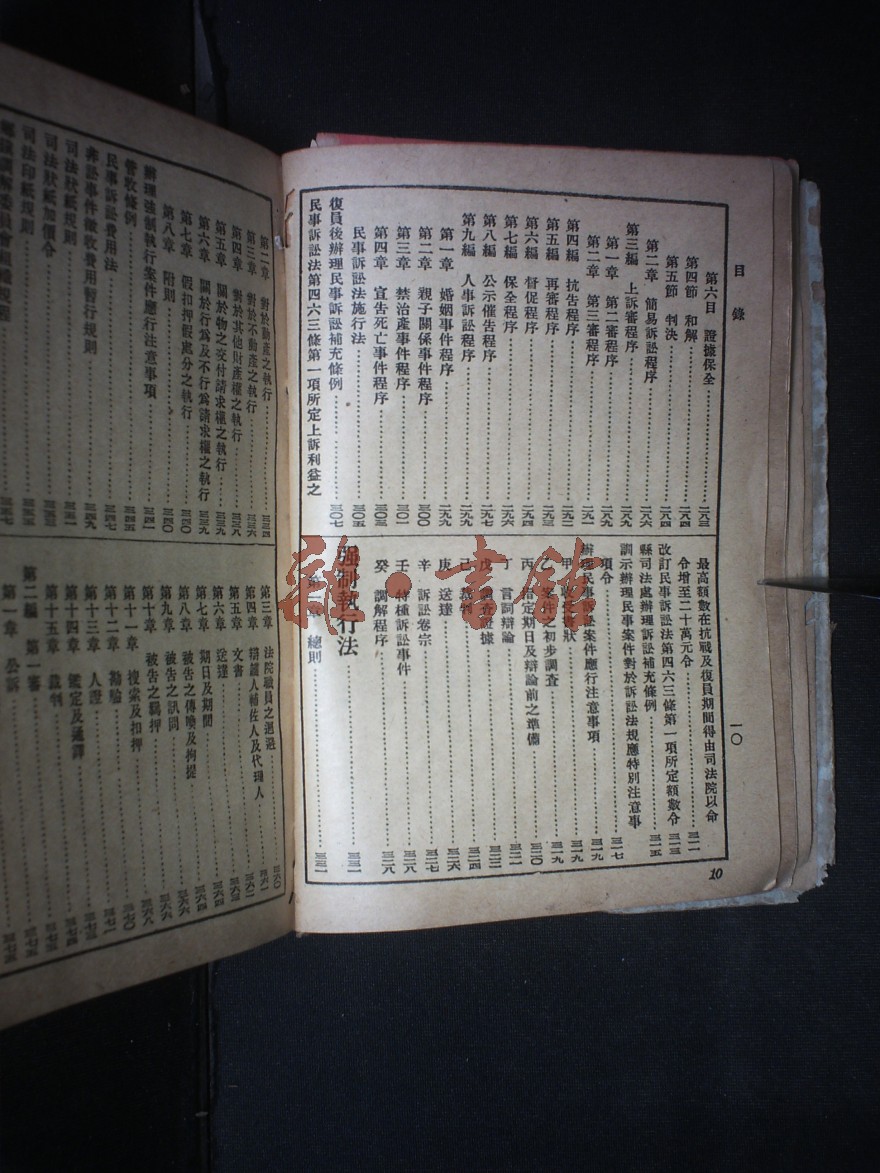 目錄
一〇
第六目 證據保全 二八三
第四節 和解 二八四
第五節 判決 二八四
第二章 簡易訴訟程序 二八八
第三編 上訴審程序 二八九
第一章 第二審程序 二八九
第二章 第三審程序 二九一
第四編 抗告程序 二九二
第五編 再審程序 二九三
第六編 督促程序 二九四
第七編 保全程序 二九六
第八編 公示催告程序 二九七
第九編 人事訴訟程序 二九九
第一章 婚姻事件程序 二九九
第二章 親子關係事件程序 三〇〇
第三章 禁治產事件程序 三〇一
第四章 宣告死亡事件程序 三〇三
民事訴訟法施行法 三〇五
復員後辦理民事訴訟補充條例 三〇七
民事訴訟法第四六三條第一項所定上訴利益之
最高額數在抗戰及復員期間得由司法院以命
令增至二十萬元令 三一一
改訂民事訴訟法第四六三條第一項所定額數令 三一三
縣司法處辦理訴訟補充條例 三一五
調示辦理民事案件對於訴訟法規應特別注意事
項令 三一七
辦理民事訴訟案件應行注意事項 三一九
甲 收受書狀 三一九
乙 案件之初步調查 三一九
丙 指定期日及辯論前之準備 三二〇
丁 言詞辯論 三二一
戊 調查證據 三二二
己 裁判 三二四
庚 送達 三二六
辛 訴訟卷宗 三二七
壬 特種訴訟事件 三二八
癸 調解程序 三二八
強制執行法
第一章 總則 三三一
10
第二章 對於動產之執行 三三四
第三章 對於不動產之執行 三三六
第四章 對於其他財產權之執行 三三八
第五章 關於物之交付請求權之執行 三三九
第六章 關於行為及不行為請求權之執行 三三九
第七章 假扣押假處分之執行 三四〇
第八章 附則 三四〇
辦理強制執行案件應行注意事項 三四一
管收條例
民事訴訟費用法 三四七
非訟事件徵收費用暫行規則 三四九
司法狀紙規則
司法狀紙加價令
司法印紙規則
第三章 法院職員之迴避 三六〇
第四章 辯護人輔佐人及代理人 三六一
第五章 文書 三六二
第六章 送達 三六三
第七章 期日及期間 三六四
第八章 被告之傳喚及拘提
第九章 被告之訊問 三六六
第十章 被告之羈押 三六六
第十一章 搜索及扣押 三六八
第十二章 勘驗 三七〇
第十三章 人證 三七一
第十四章 鑑定及通譯
第十五章 裁判 三七四
第二編 第一審
第一章 公訴
雜·書館